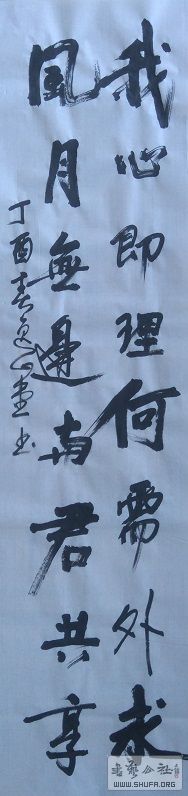 我心即理何需外求
風月無邊与君共享
丁酉春逸心堂书
书艺公社
WWW.SHUFA.ORG